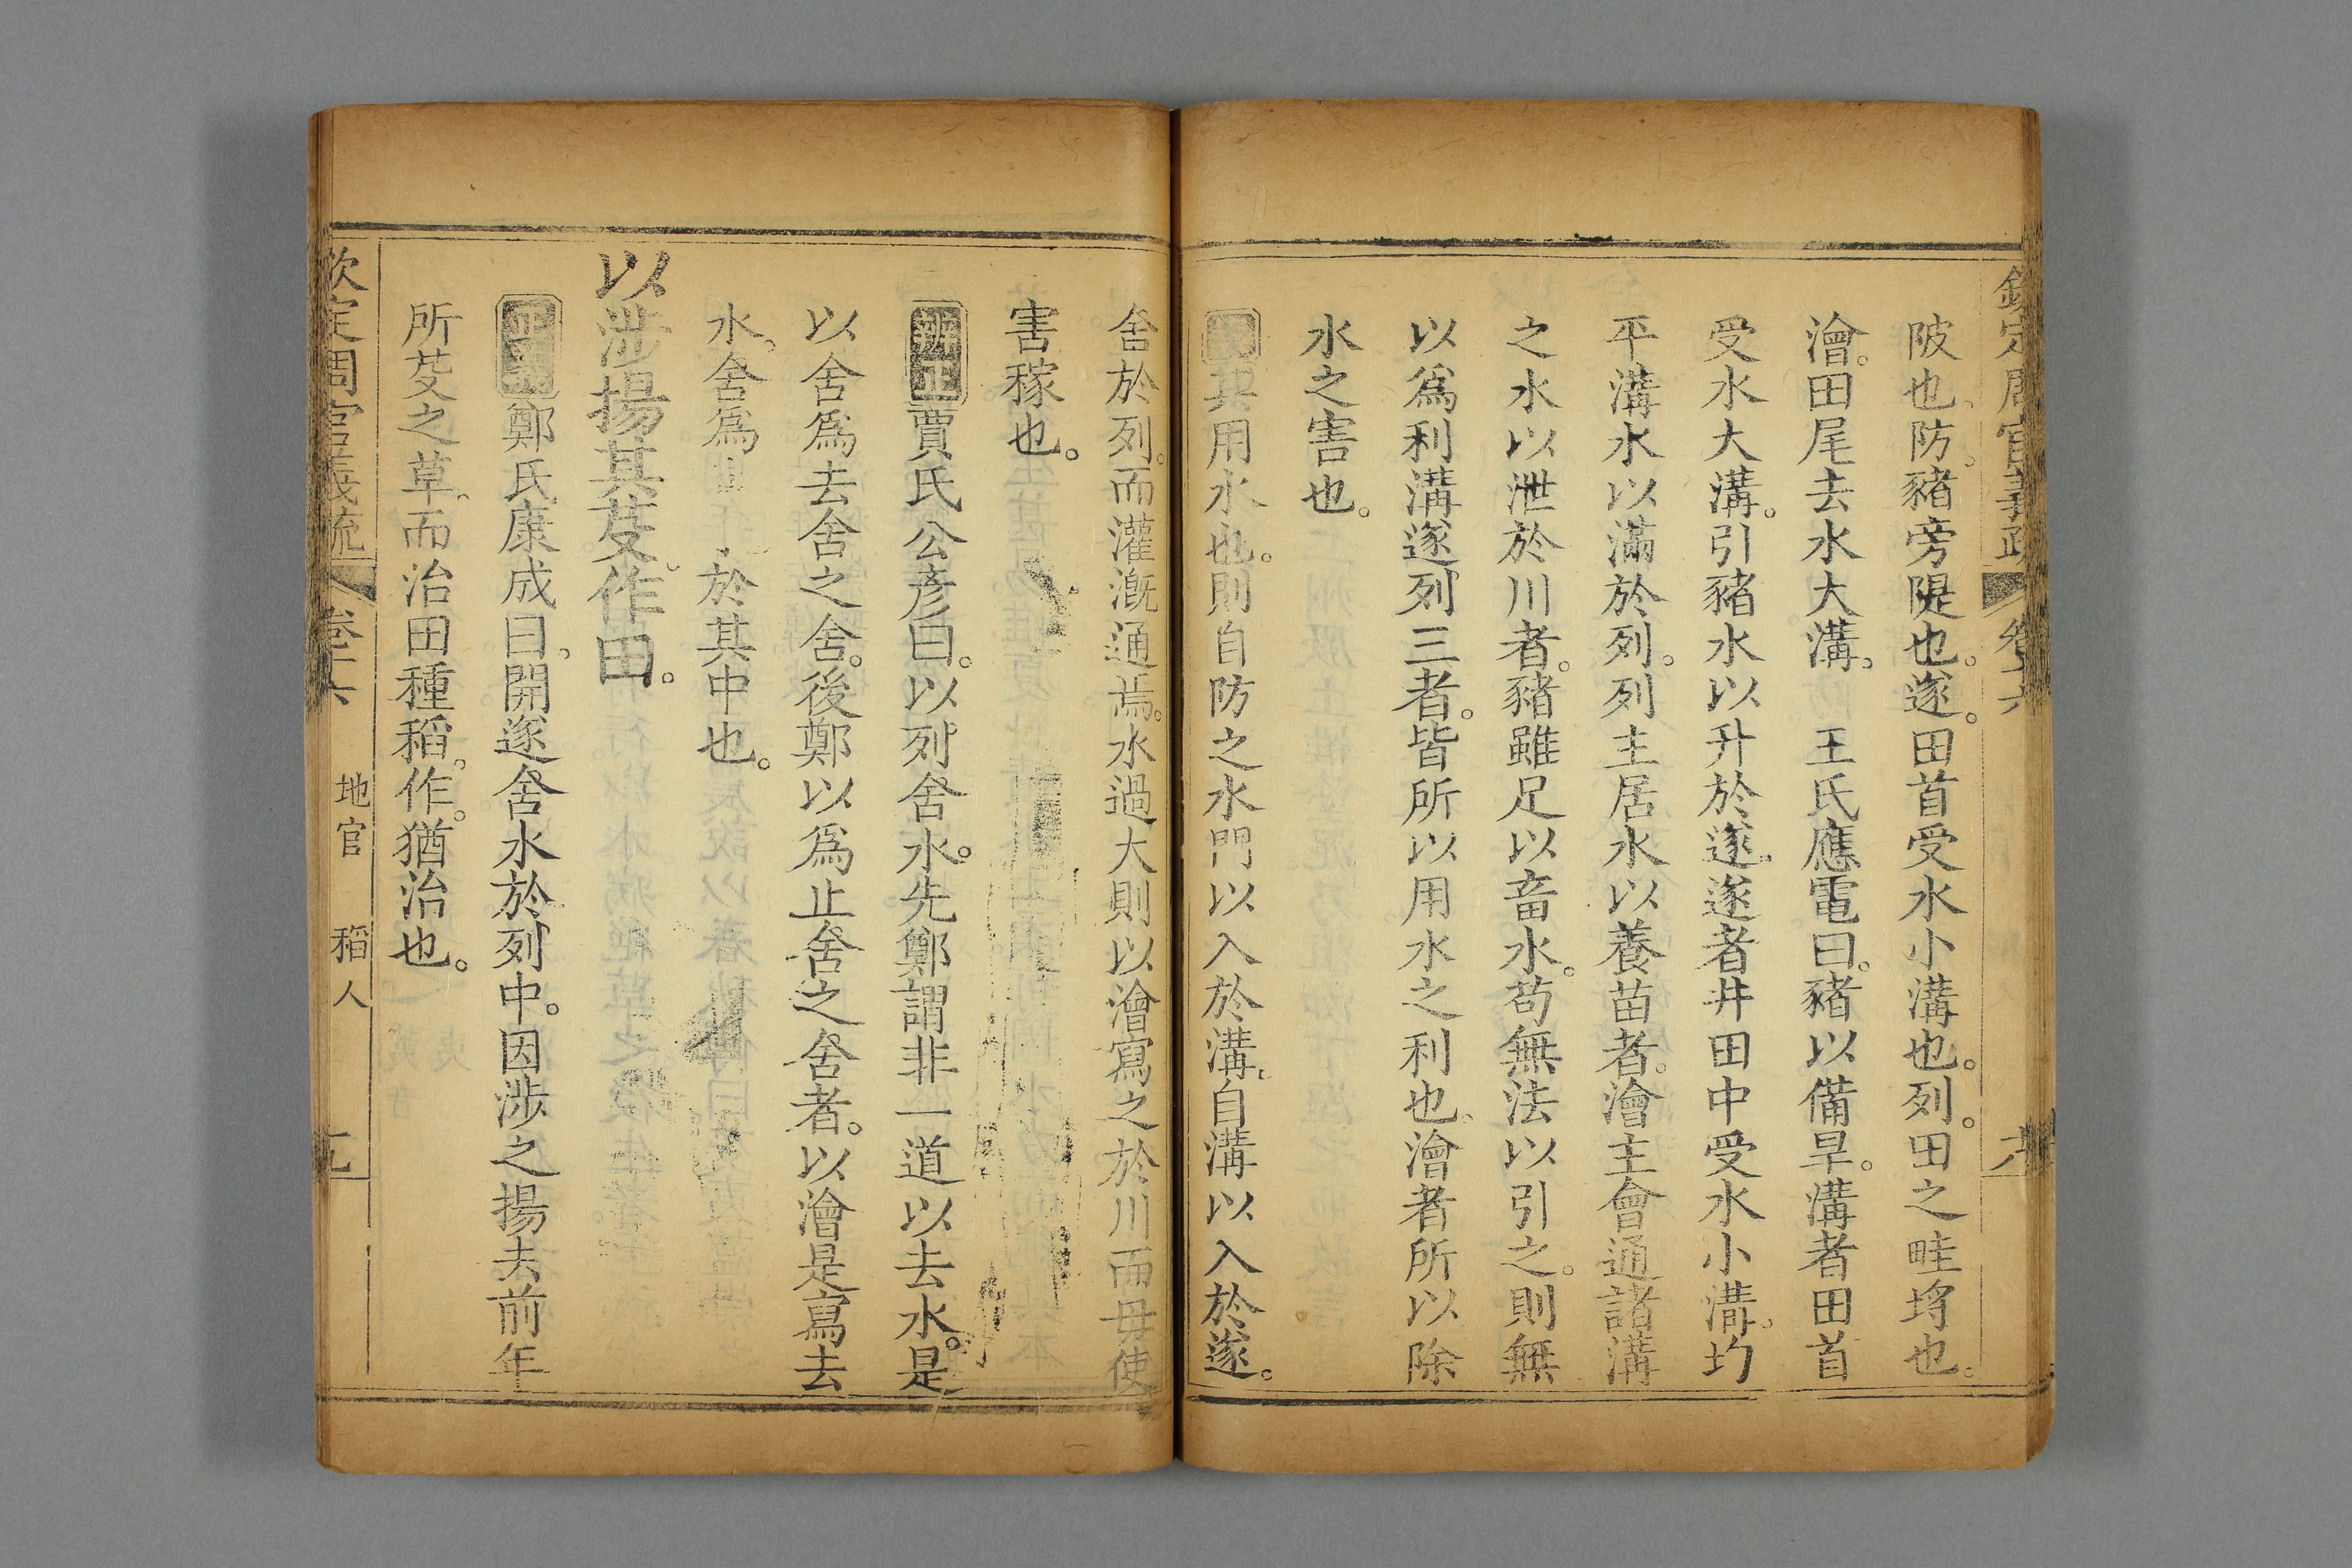 欽定周官義疏 卷十六
陂也防豬旁隄也遂田首受水小溝也列田之畦埒也
澮田尾去水大溝 王氏應電曰豬以備旱溝者田首
受水大溝引豬水以升於遂遂者井田中受水小溝均
平溝水以滿於列列主居水以養苗者澮主會通諸溝
之水以泄於川者豬雖足以畜水苟無法以引之則無
以爲利溝遂列三者皆所以用水之利也澮者所以除
水之害也
其用水也則自防之水門以入於溝自溝以入於遂
舍於列而灌漑通焉水過大則以澮寫之於川而毋使
害稼也
辨正賈氏公彥曰以列舍水先鄭謂非一道以去水是
以舍爲去舍之舍後鄭以爲止舍之舍者以澮是寫去
水舍爲 於其中也
以涉揚其芟作田
正義鄭氏康成曰開遂舍水於列中因涉之揚去前年
所芟之草而治田種稻作猶治也
欽定周官義疏 卷十六 地官 稻人